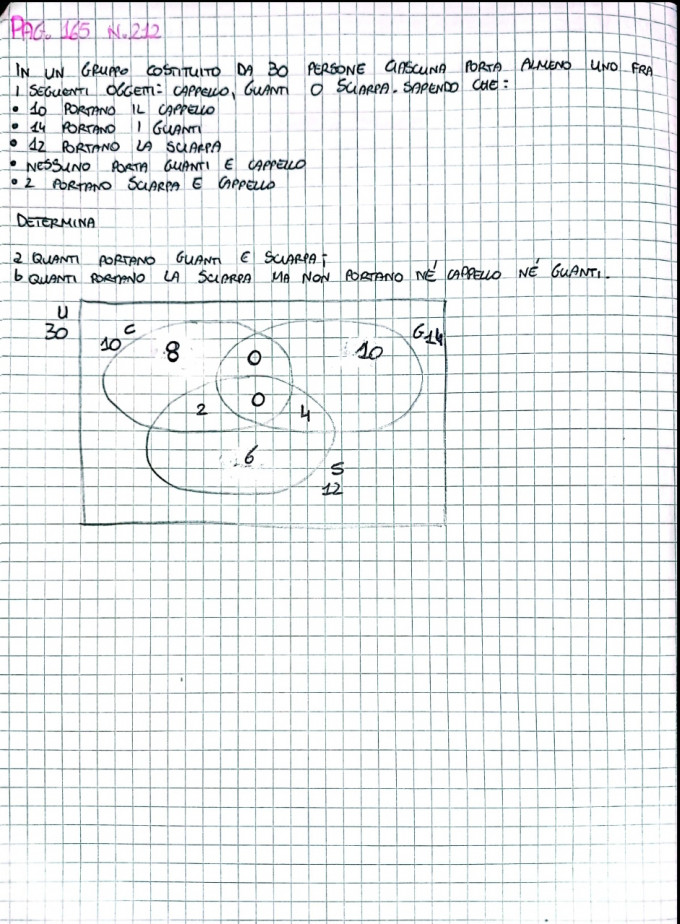 PAG. 165 N.212
IN UN GRUPPO COSTITUITO DA 30 PERSONE CIASCUNA PORTA ALMENO UNO FRA
I SEGUENTI OGGETI: CAPPELLO, GUANTI O SCIARPA. SAPENDO CHE:
• 10 PORTANO IL CAPPELLO
• 14 PORTANO I GUANTI
• 12 PORTANO LA SCIARPA
• NESSUNO PORTA GUANTI E CAPPELLO
• 2 PORTANO SCIARPA E CAPPELLO
DETERMINA
a QUANTI PORTANO GUANTI E SCIARPA;
b QUANTI PORTANO LA SCIARPA MA NON PORTANO NÉ CAPPELLO NÉ GUANTI.
U
30
C
10
8
0
10
G 14
2
0
4
6
S
12